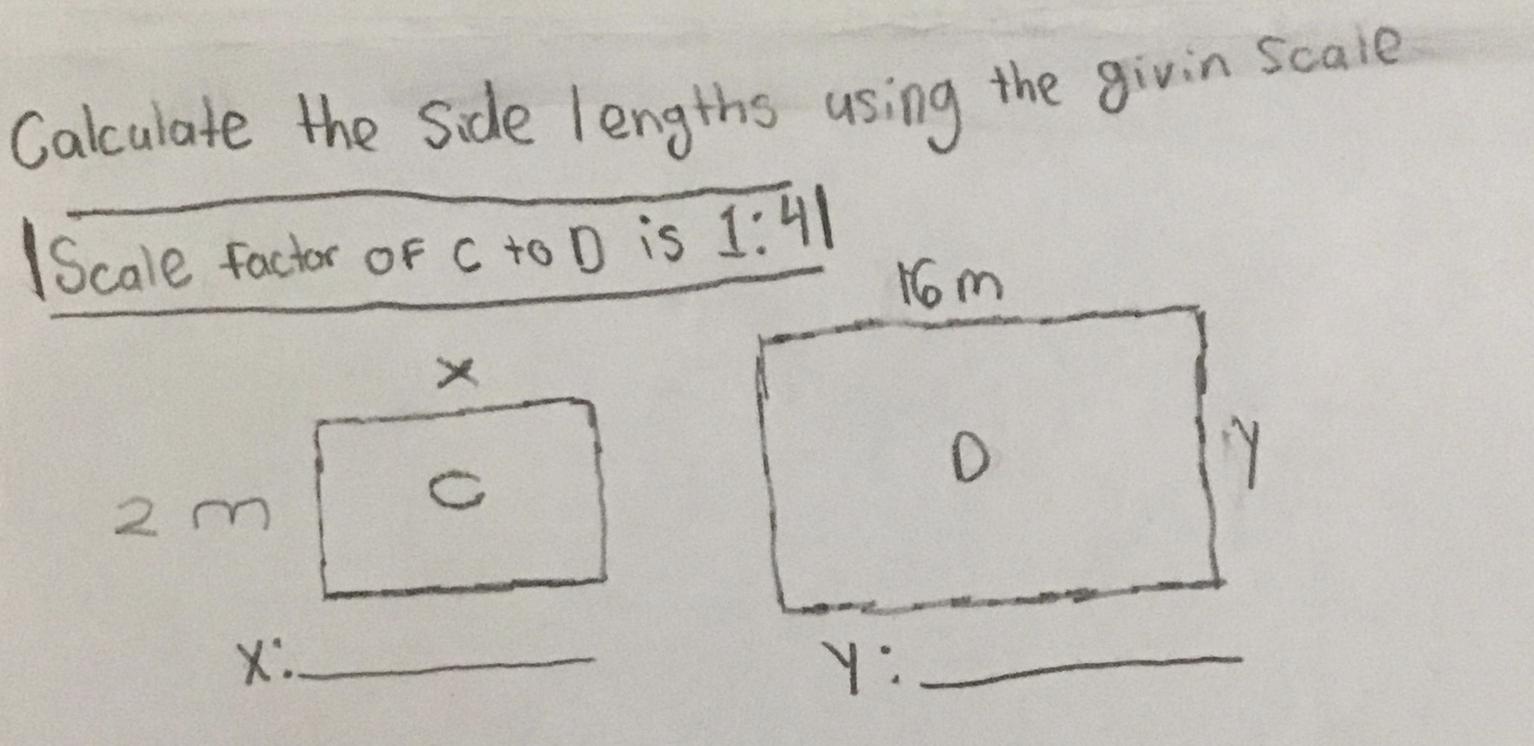 Calculate the side lengths using the givin scale
Scale factor OF C to D is 1:4
16 m
x
C
D
y
2 m
X:
Y: